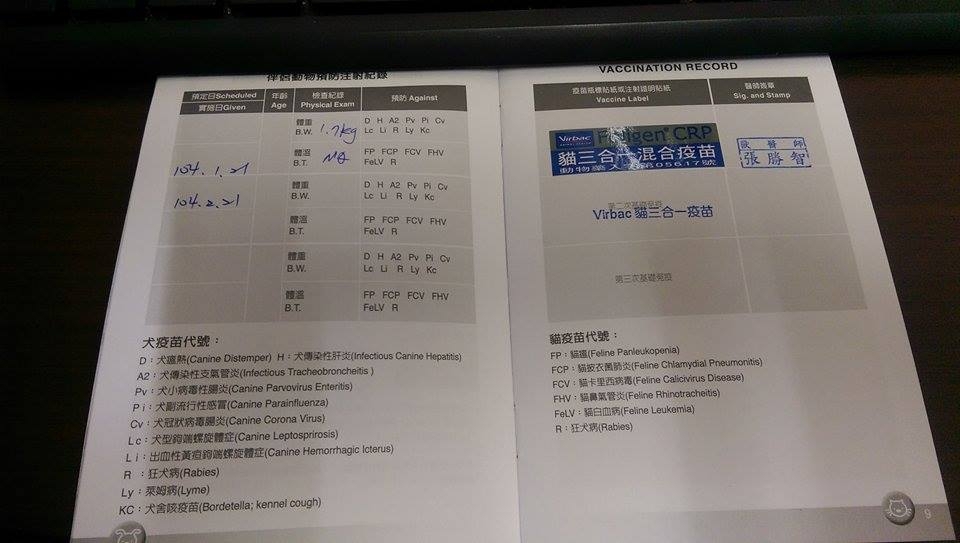 伴侶動物預防注射紀錄
預定日Scheduled
實施日Given
年齡 Age
檢查紀錄 Physical Exam
預防 Against
體重 B.W. 1.7kg
D H A2 Pv Pi Cv
Lc Li R Ly Kc
104.1.21
體溫 B.T.
FP FCP FCV FHV
FeLV R
104.2.21
體重 B.W.
D H A2 Pv Pi Cv
Lc Li R Ly Kc
體溫 B.T.
FP FCP FCV FHV
FeLV R
體重 B.W.
D H A2 Pv Pi Cv
Lc Li R Ly Kc
體溫 B.T.
FP FCP FCV FHV
FeLV R
犬疫苗代號：
D：犬瘟熱(Canine Distemper) H：犬傳染性肝炎(Infectious Canine Hepatitis)
A2：犬傳染性支氣管炎(Infectious Tracheobroncheitis )
Pv：犬小病毒性腸炎(Canine Parvovirus Enteritis)
Pi：犬副流行性感冒(Canine Parainfluenza)
Cv：犬冠狀病毒腸炎(Canine Corona Virus)
Lc：犬型鉤端螺旋體症(Canine Leptosprirosis)
Li：出血性黃疸鉤端螺旋體症(Canine Hemorrhagic Icterus)
R ：狂犬病(Rabies)
Ly：萊姆病(Lyme)
KC：犬舍咳疫苗(Bordetella; kennel cough)
VACCINATION RECORD
疫苗瓶標貼紙或注射證明貼紙
Vaccine Label
醫師簽章
Sig. and Stamp
Virbac CRP
貓三合一混合疫苗
第05617號
獸醫師
張勝智
第二次基礎免疫
Virbac 貓三合一疫苗
第三次基礎免疫
貓疫苗代號：
FP：貓瘟(Feline Panleukopenia)
FCP：貓披衣菌肺炎(Feline Chlamydial Pneumonitis)
FCV：貓卡里西病毒(Feline Calicivirus Disease)
FHV：貓鼻氣管炎(Feline Rhinotracheitis)
FeLV：貓白血病(Feline Leukemia)
R：狂犬病(Rabies)
9